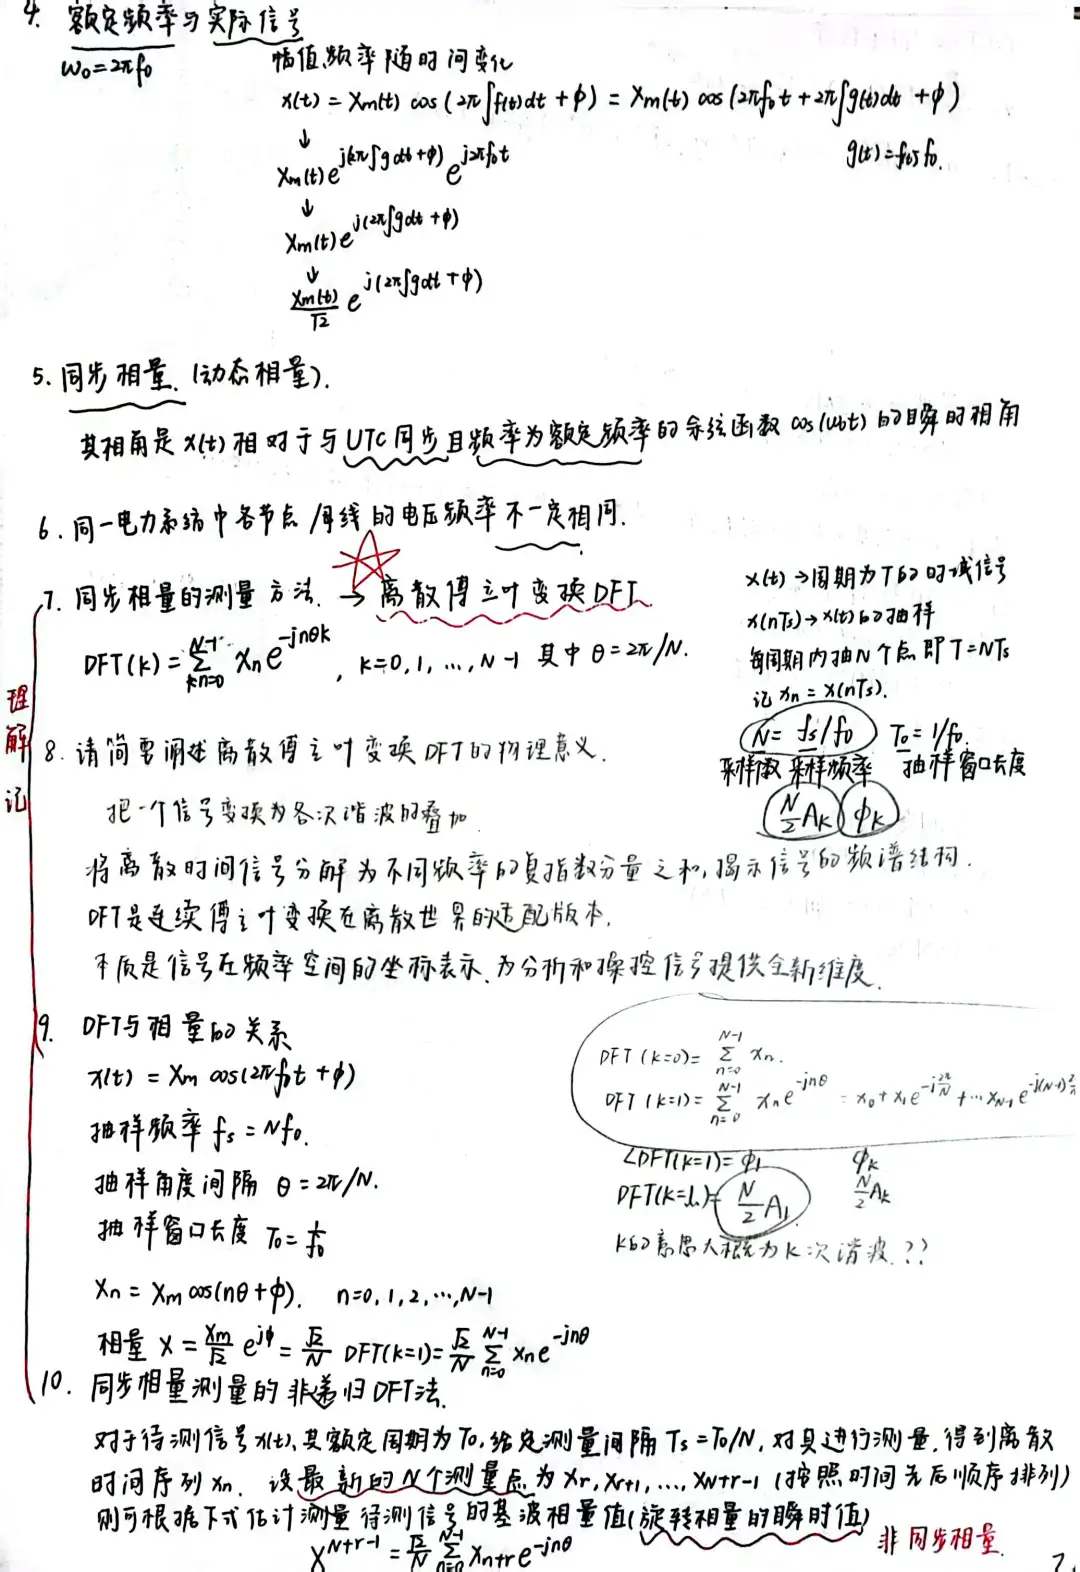 4. 额定频率与实际信号
ω₀=2πf₀
幅值,频率随时间变化
x(t) = Xm(t) cos(2π∫f(t)dt + φ) = Xm(t) cos(2πf₀t + 2π∫g(t)dt + φ)
↓
g(t)=f(t)-f₀.
Xm(t)e^{j(2π∫gdt+φ)} e^{j2πf₀t}
↓
Xm(t)e^{j(2π∫gdt+φ)}
↓
Xm(t)/√2 e^{j(2π∫gdt+φ)}
5. 同步相量.(动态相量).
其相角是x(t)相对于与UTC同步且频率为额定频率的余弦函数cos(ω₀t)的瞬时相角
6. 同一电力系统中各节点/母线的电压频率不一定相同.
7. 同步相量的测量方法. → 离散傅立叶变换DFT
DFT(k) = Σ_{n=0}^{N-1} xₙe^{-jnθk}, k=0,1,…,N-1 其中θ=2π/N.
x(t)→周期为T的时域信号
x(nTs)→x(t)的抽样
每周期内抽N个点即T=NTs
记xₙ=x(nTs).
N= fs/f₀ T₀=1/f₀.
采样数 采样频率 抽样窗口长度
N/2 Ak φk
理解记
8. 请简要阐述离散傅立叶变换DFT的物理意义.
把一个信号变换为各次谐波的叠加
将离散时间信号分解为不同频率的复指数分量之和,揭示信号的频谱结构.
DFT是连续傅立叶变换在离散世界的适配版本.
本质是信号在频率空间的坐标表示、为分析和操控信号提供全新维度.
9. DFT与相量的关系
x(t) = Xm cos(2πf₀t + φ)
抽样频率 fs = Nf₀.
抽样角度间隔 θ=2π/N.
抽样窗口长度 T₀=1/f₀
Xn = Xm cos(nθ+φ). n=0,1,2,…,N-1
相量 X = Xm/√2 e^{jφ} = √2/N DFT(k=1) = √2/N Σ_{n=0}^{N-1} xₙe^{-jnθ}
DFT(k=0)= Σ_{n=0}^{N-1} xₙ.
DFT(k=1)= Σ_{n=0}^{N-1} xₙe^{-jnθ} = x₀+x₁e^{-j2π/N}+…x_{N-1}e^{-j(N-1)2π/N}
∠DFT(k=1)=φ₁ φk
DFT(k=1)= N/2 A₁ N/2 Ak
k的意思大概为k次谐波.??
10. 同步相量测量的非递归DFT法.
对于待测信号x(t),其额定周期为T₀,给定测量间隔Ts=T₀/N,对其进行测量,得到离散
时间序列xₙ. 设最新的N个测量点为Xr,Xr+1,…,XN+r-1(按照时间先后顺序排列)
则可根据下式估计测量待测信号的基波相量值(旋转相量的瞬时值)
非同步相量.
X^{N+r-1} = √2/N Σ_{n=0}^{N-1} x_{n+r}e^{-jnθ}